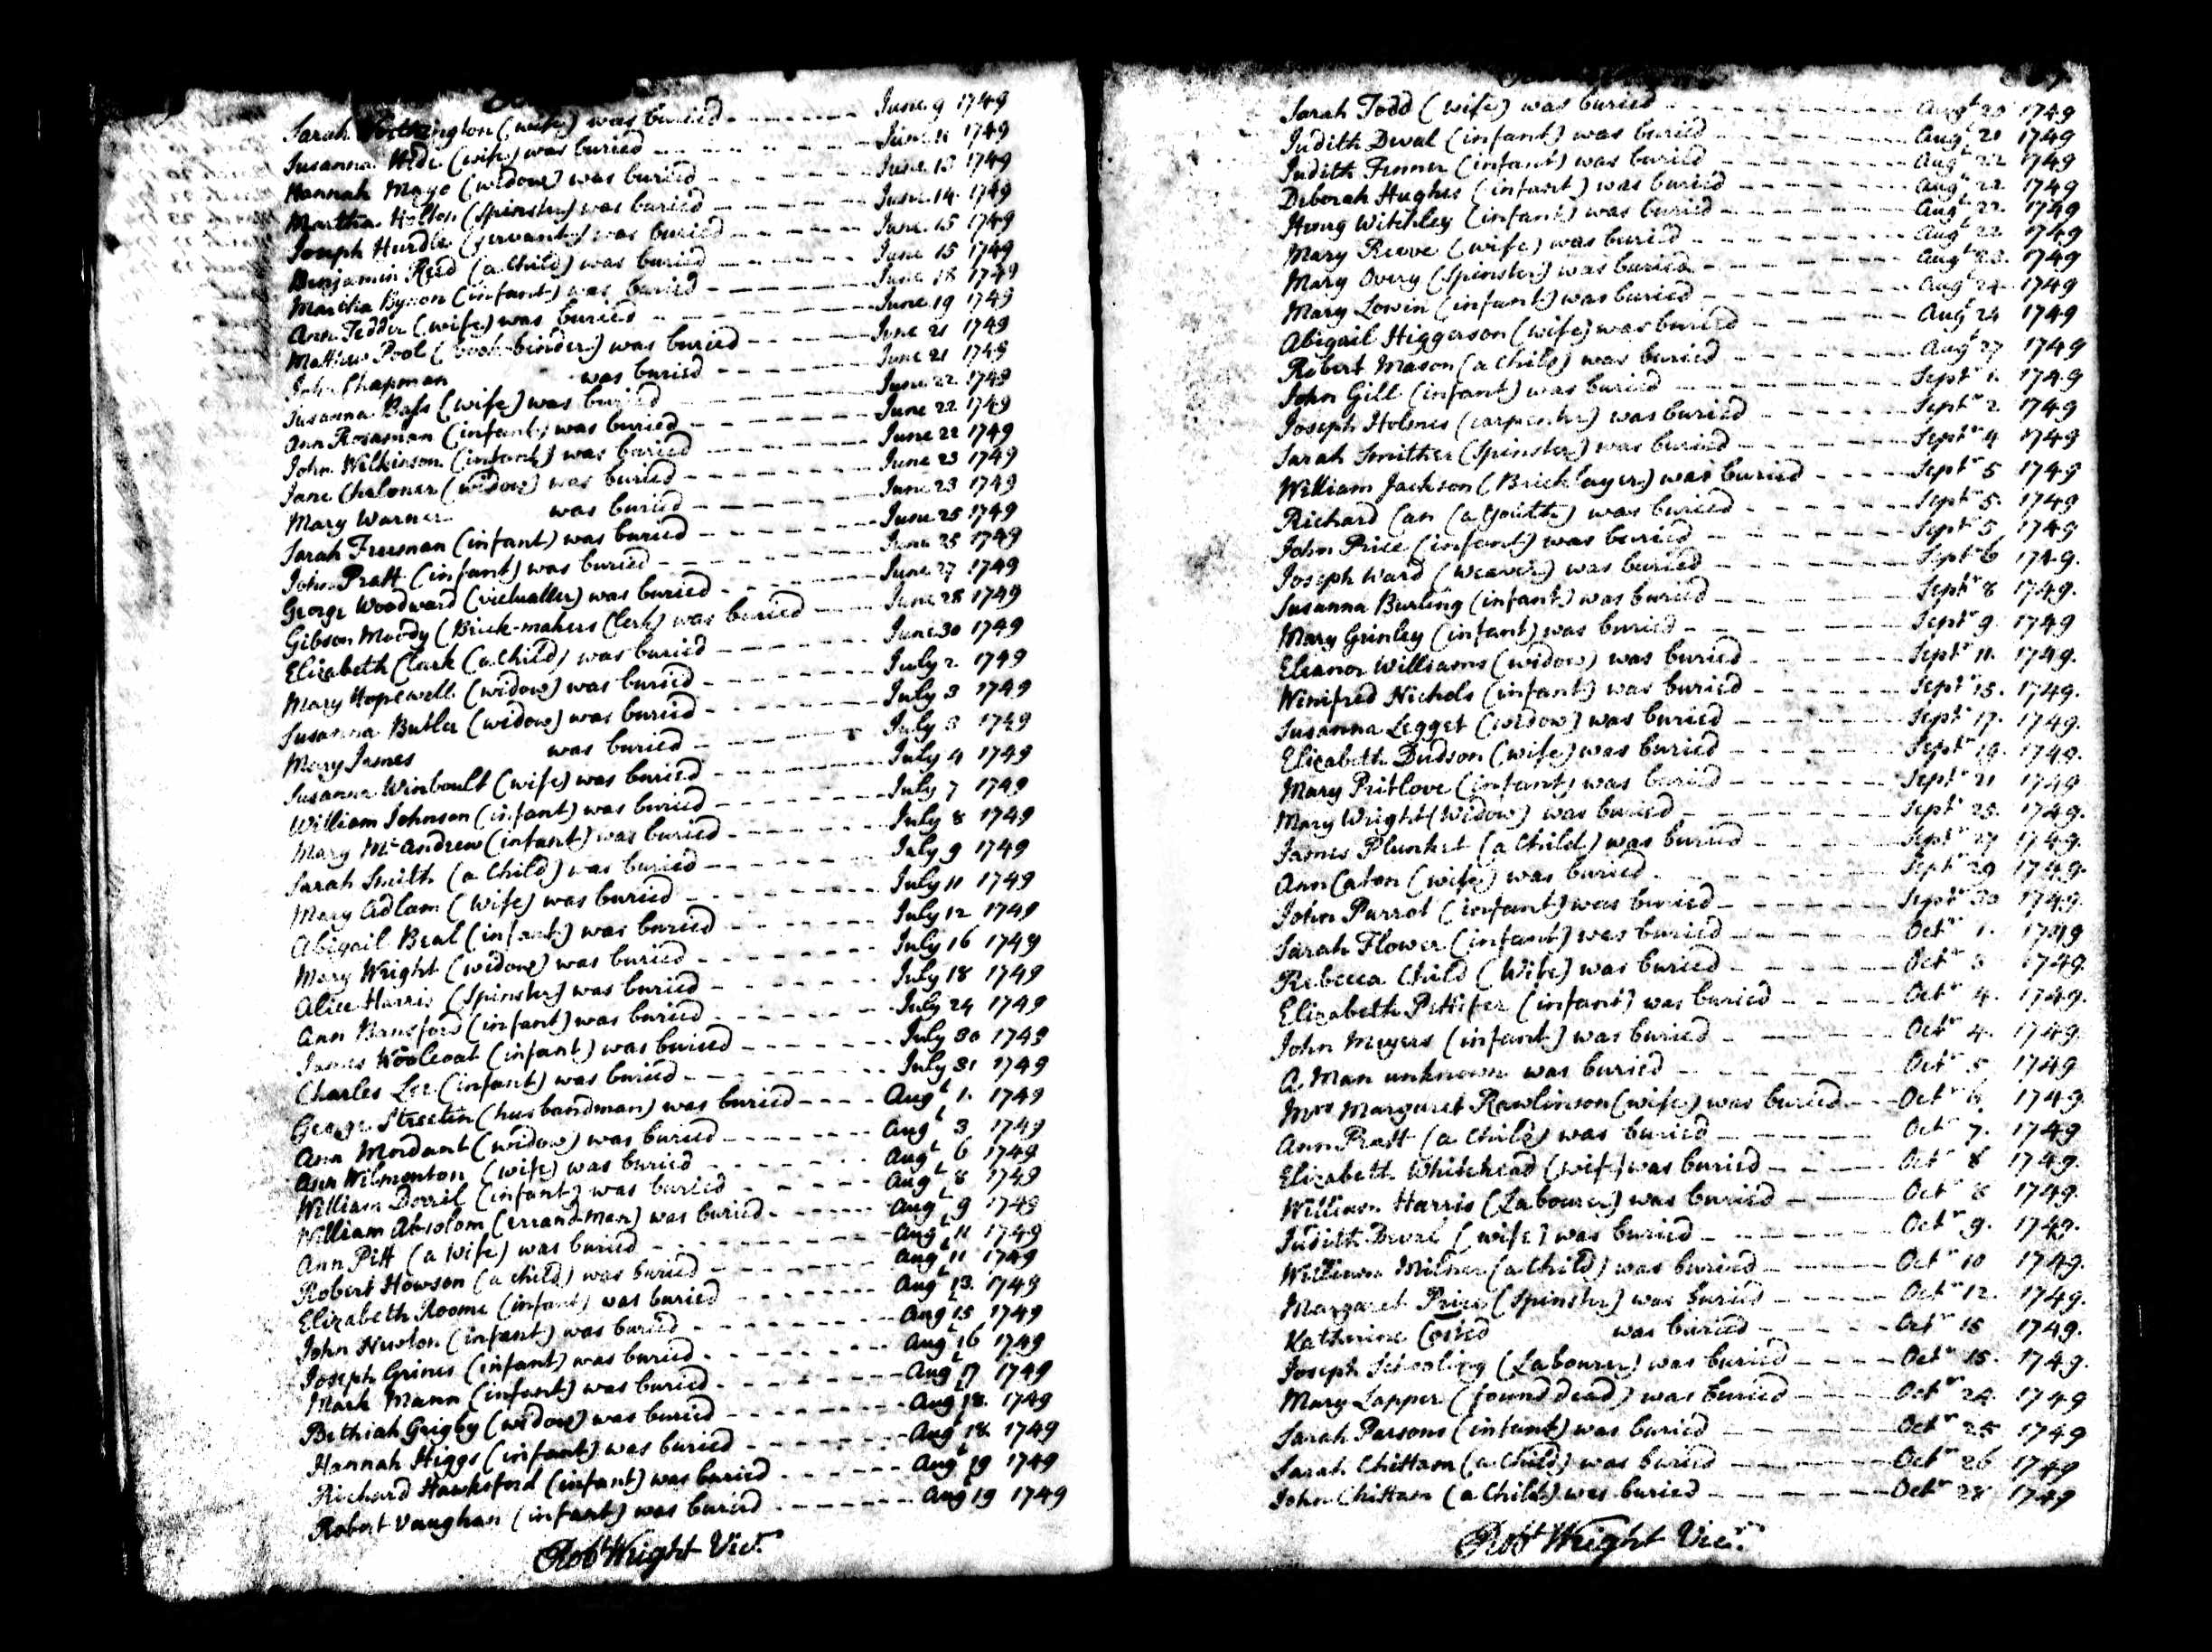 Sarah (wife) was buried June 9 1749
Susanna Hide (wife) was buried June 11 1749
Hannah Mayo (widow) was buried June 13 1749
Martha Holton (Spinster) was buried June 14 1749
Joseph Hurdle (servant) was buried June 15 1749
Benjamin Reed (a Child) was buried June 15 1749
Martha Bynon (infant) was buried June 18 1749
Ann Tedder (wife) was buried June 19 1749
Matthew Pool (book-binder) was buried June 21 1749
John Chapman was buried June 21 1749
Susanna Bass (wife) was buried June 22 1749
Ann (infant) was buried June 22 1749
John Wilkinson (infant) was buried June 22 1749
Jane Chaloner (widow) was buried June 23 1749
Mary Warner was buried June 23 1749
Sarah Freeman (infant) was buried June 25 1749
John Pratt (infant) was buried June 25 1749
George Woodward (victualler) was buried June 27 1749
Gibson Moody (Brick-makers Clerk) was buried June 28 1749
Elizabeth Clark (a Child) was buried June 30 1749
Mary Hopewell (widow) was buried July 2 1749
Susanna Butler (widow) was buried July 3 1749
Mary James was buried July 3 1749
Susanna Winboult (wife) was buried July 4 1749
William Johnson (infant) was buried July 7 1749
Mary Mc Andrew (infant) was buried July 8 1749
Sarah Smith (a Child) was buried July 9 1749
Mary Adlam (Wife) was buried July 11 1749
Abigail Beal (infant) was buried July 12 1749
Mary Wright (widow) was buried July 16 1749
Alice Harris (Spinster) was buried July 18 1749
Ann Bansford (infant) was buried July 24 1749
James Woolcoat (infant) was buried July 30 1749
Charles Lee (infant) was buried July 31 1749
George Streetin (husbandman) was buried Augt 1. 1749
Ann Mordant (widow) was buried Augt 3 1749
Ann Wilmonton (wife) was buried Augt 6 1749
William Dorril (infant) was buried Augt 8 1749
William Absolom (errand-Man) was buried Augt 9 1749
Ann Pitt (a wife) was buried Augt 11 1749
Robert Howson (a child) was buried Augt 11 1749
Elizabeth Roome (infant) was buried Augt 13. 1749
John Newton (infant) was buried Augt 15 1749
Joseph Grines (infant) was buried Augt 16 1749
Mark Mann (infant) was buried Augt 17 1749
Bethiah Grigby (widow) was buried Augt 18. 1749
Hannah Higgs (infant) was buried Augt 18. 1749
Richard Hawksford (infant) was buried Augt 19 1749
Robert Vaughan (infant) was buried Augt 19 1749
Robt Wright Vicr.
Sarah Todd (wife) was buried Augt 20 1749
Judith Deval (infant) was buried Augt 21 1749
Judith Fenner (infant) was buried Augt 22 1749
Deborah Hughes (infant) was buried Augt 22 1749
Henry Witchley (infant) was buried Augt 22. 1749
Mary Reeve (wife) was buried Augt 22 1749
Mary Overy (Spinster) was buried Augt 23. 1749
Mary Lowin (infant) was buried Augt 24 1749
Abigail Higgerson (wife) was buried Augt 24 1749
Robert Mason (a Child) was buried Augt 27 1749
John Gill (infant) was buried Septr 1. 1749
Joseph Holmes (carpenter) was buried Septr 2 1749
Sarah Smither (Spinster) was buried Septr 4 1749
William Jackson (Bricklayer) was buried Septr 5 1749
Richard Can (a Youth) was buried Septr 5. 1749
John Price (infant) was buried Septr 5 1749
Joseph Ward (Weaver) was buried Septr 6 1749.
Susanna Burling (infant) was buried Septr 8 1749.
Mary Grinley (infant) was buried Septr 9. 1749
Eleanor Williams (widow) was buried Septr 11. 1749.
Winifred Nichols (infant) was buried Septr 15. 1749.
Susanna Legget (widow) was buried Septr 17. 1749.
Elizabeth Dudson (wife) was buried Septr 19. 1749.
Mary Pritlove (infant) was buried Septr 21 1749
Mary Wright (Widow) was buried Septr 25. 1749.
James Plunket (a Child) was buried Septr 27 1749.
Ann Caton (wife) was buried Septr 29 1749.
John Parrot (infant) was buried Septr 30 1749.
Sarah Flower (infant) was buried Octr 1. 1749
Rebecca Child (Wife) was buried Octr 3 1749.
Elizabeth Pettifer (infant) was buried Octr 4. 1749.
John Meyers (infant) was buried Octr 4. 1749.
A Man unknown was buried Octr 5 1749
Mrs Margaret Rawlinson (wife) was buried Octr 6. 1749.
Ann Pratt (a Child) was buried Octr 7. 1749
Elizabeth Whitehead (wife) was buried Octr 8 1749.
William Harris (Labourer) was buried Octr 8 1749.
Judith Deval (wife) was buried Octr 9. 1749.
William Milner (a Child) was buried Octr 10 1749.
Margaret Price (Spinster) was buried Octr 12. 1749.
Katharine was buried Octr 15 1749.
Joseph Schooling (Labourer) was buried Octr 15. 1749.
Mary Lapper (found dead) was buried Octr 24 1749
Sarah Parsons (infant) was buried Octr 25 1749
Sarah Chittam (a Child) was buried Octr 26 1749
John Chittam (a Child) was buried Octr 28 1749
Robt Wright Vicr.